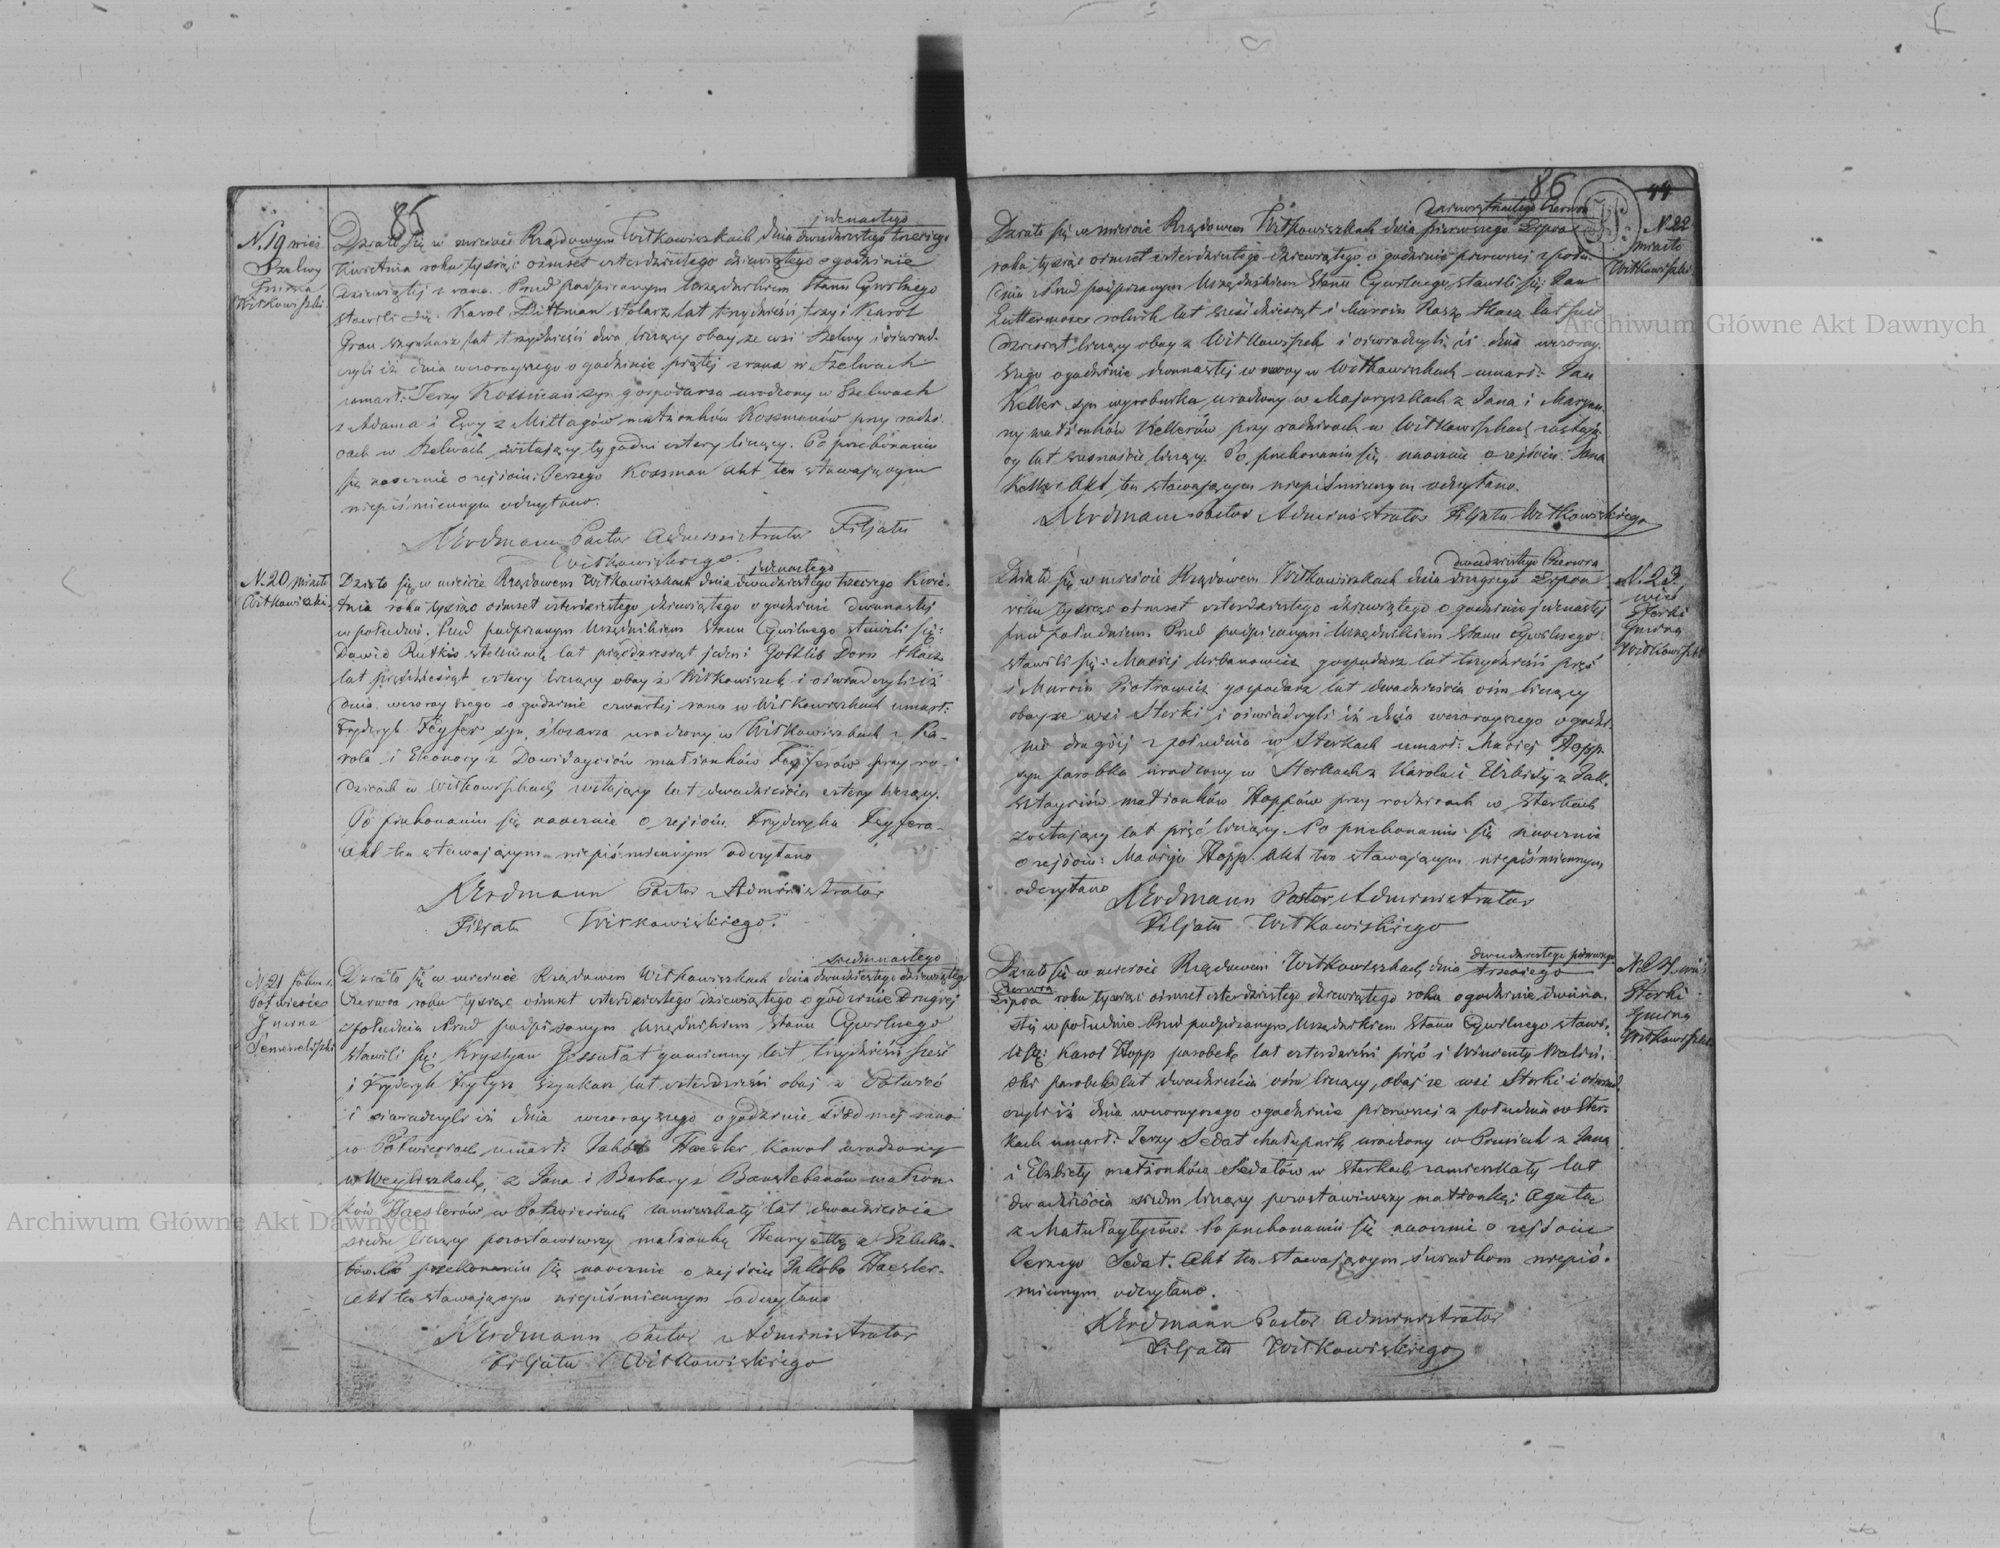 85
N. 19 wieś
Szelwy
Gmina
Witkowiszki
jedenastego
Działo się w mieście Rządowym Witkowiszkach dnia dwudziestego trzeciego
Kwietnia roku tysiąc ośmset czterdziestego dziewiątego o godzinie
dziewiątej z rana. Przed podpisanym Urzędnikiem Stanu Cywilnego
stawili się: Karol Dittman stolarz lat trzydzieści trzy i Karol
Grau szynkarz lat trzydzieści dwa liczący obay ze wsi Szelwy i oświad-
czyli iż dnia wczorayszego o godzinie piątej z rana w Szelwach
umarł: Jerzy Kossman syn gospodarza urodzony w Szelwach
z Adama i Ewy z Mittagów małżonków Kossmanów przy rodzi-
cach w Szelwach zostający tygodni cztery liczący. Po przekonaniu
się naocznie o zejściu Jerzego Kossman Akt ten stawającym
niepiśmiennym odczytano.
Erdmann Pastor Administrator Filjału
Witkowiskiego.
N. 20 miasto
Witkowiszki
jedenastego
Działo się w mieście Rządowem Witkowiszkach dnia dwudziestego trzeciego Kwie-
tnia roku tysiąc ośmset czterdziestego dziewiątego o godzinie dwunastej
w południe. Przed podpisanym Urzędnikiem Stanu Cywilnego stawili się:
Dawid Rutkis stelmach lat pięćdziesiąt jeden i Gottlib Dorn tkacz
lat pięćdziesiąt cztery liczący obay z Witkowiszek i oświadczyli iż
dnia wczorayszego o godzinie czwartej rano w Witkowiszkach umarł:
Fryderyk Feyfer syn ślosarza urodzony w Witkowiszkach z Ka-
rola i Eleonory z Dawidayciów małżonków Feyferów przy ro-
dzicach w Witkowiszkach zostający lat dwadzieścia cztery liczący.
Po przekonaniu się naocznie o zejściu Fryderyka Feyfera
Akt ten stawającym niepiśmiennym odczytano
Erdmann Pastor Administrator
Filjału Witkowiskiego.
N. 21 folwark
Potwiecie
Gmina
siedmnastego
Działo się w mieście Rządowem Witkowiszkach dnia dwudziestego dziewiątego
Czerwca roku tysiąc ośmset czterdziestego dziewiątego o godzinie Drugiej
z południa Przed podpisanym Urzędnikiem Stanu Cywilnego
stawili się: Krystyan Jessulat gumienny lat trzydzieści sześć
i Fryderyk szynkarz lat czterdzieści obaj z
i oświadczyli iż dnia wczorayszego o godzinie siódmej rano
w umarł: Jakób Haesler kowal urodzony
w z Jana i Barbary z małżon-
ków Haeslerów w zamieszkały lat dwadzieścia
siedm liczący pozostawiwszy małżonkę Henryettę z
Po przekonaniu się naocznie o zejściu Jakóba Haesler
Akt ten stawającym niepiśmiennym odczytano
Erdmann Pastor Administrator
Filjału Witkowiskiego
86
44
N. 22
miasto
Witkowiszki
dziewiętnastego Czerwca
Działo się w mieście Rządowem Witkowiszkach dnia pierwszego Lipca
roku tysiąc ośmset czterdziestego dziewiątego o godzinie pierwszej z połu-
dnia Przed podpisanym Urzędnikiem Stanu Cywilnego stawili się: Jan
Luttermoser rolnik lat sześćdziesiąt i Marcin tkacz lat pięć-
dziesiąt liczący obay z Witkowiszek i oświadczyli iż dnia wczoray-
szego o godzinie dwunastej w nocy w Witkowiszkach umarł: Jan
Keller syn wyrobnika, urodzony w Majoryszkach z Jana i Maryan-
ny małżonków Kellerów przy rodzicach w Witkowiszkach zostają-
cy lat szesnaście liczący. Po przekonaniu się naocznie o zejściu Jana
Keller Akt ten stawającym niepiśmiennym odczytano.
Erdmann Pastor Administrator Filjału Witkowiskiego
N. 23
wieś
Sterki
Gmina
Witkowiszki
dwudziestego Czerwca
Działo się w mieście Rządowem Witkowiszkach dnia drugiego Lipca
roku tysiąc ośmset czterdziestego dziewiątego o godzinie jedenastej
przed południem. Przed podpisanym Urzędnikiem Stanu Cywilnego
stawili się: Maciej Urbanowicz gospodarz lat trzydzieści pięć
i Marcin Piotrowicz gospodarz lat dwadzieścia ośm liczący
obay ze wsi Sterki i oświadczyli iż dnia wczorayszego o godzi-
nie drugiej z południa w Sterkach umarł: Maciej Hopp
syn parobka urodzony w Sterkach z Karola i Elżbiety z
małżonków Hoppów przy rodzicach w Sterkach
zostający lat pięć liczący. Po przekonaniu się naocznie
o zejściu: Macieja Hopp. Akt ten stawającym niepiśmiennym
odczytano Erdmann Pastor Administrator
Filjału Witkowiskiego
N. 24 wieś
Sterki
Gmina
Witkowiszki
dwudziestego pierwszego
Działo się w mieście Rządowem Witkowiszkach dnia trzeciego
Czerwca
Lipca roku tysiąc ośmset czterdziestego dziewiątego roku o godzinie dwuna-
stej w południe Przed podpisanym Urzędnikiem Stanu Cywilnego stawi-
li się: Karol Hopp parobek lat czterdzieści pięć i Wincenty
parobek lat dwadzieścia ośm liczący, obaj ze wsi Sterki i oświad-
czyli iż dnia wczorayszego o godzinie pierwszej z południa w Ster-
kach umarł: Jerzy Sedat chałupnik urodzony w Prusiech z Jana
i Elżbiety małżonków Sedatów w Sterkach zamieszkały lat
dwadzieścia siedm liczący pozostawiwszy małżonkę: Agatę
z Matułaytysów. Po przekonaniu się naocznie o zejściu
Jerzego Sedat. Akt ten stawającym świadkom niepiś-
miennym odczytano.
Erdmann Pastor Administrator
Filjału Witkowiskiego
Archiwum Główne Akt Dawnych
Archiwum Główne Akt Dawnych